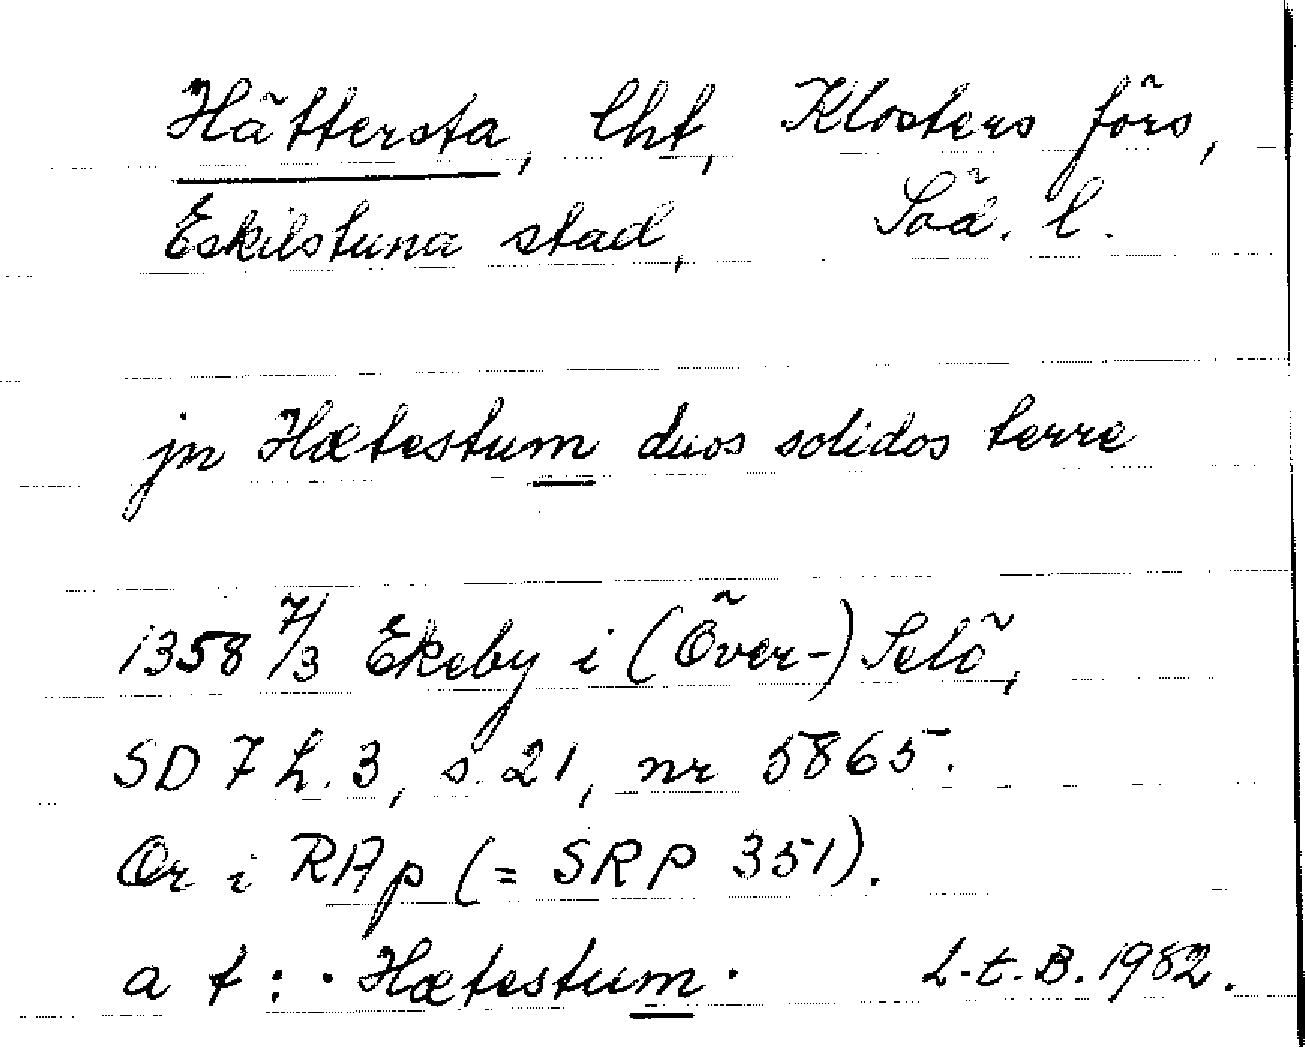 Hättersta, lht, Klosters förs,
Eskilstuna stad, Söd. l.
jn Hætestum duos solidos terre
1358 7/3 Ekeby i (Över-) Selö,
SD 7 h. 3, s. 21, nr 5865.
Or i RAp (= SRP 351).
a t: · Hætestum · L.t.B. 1982.